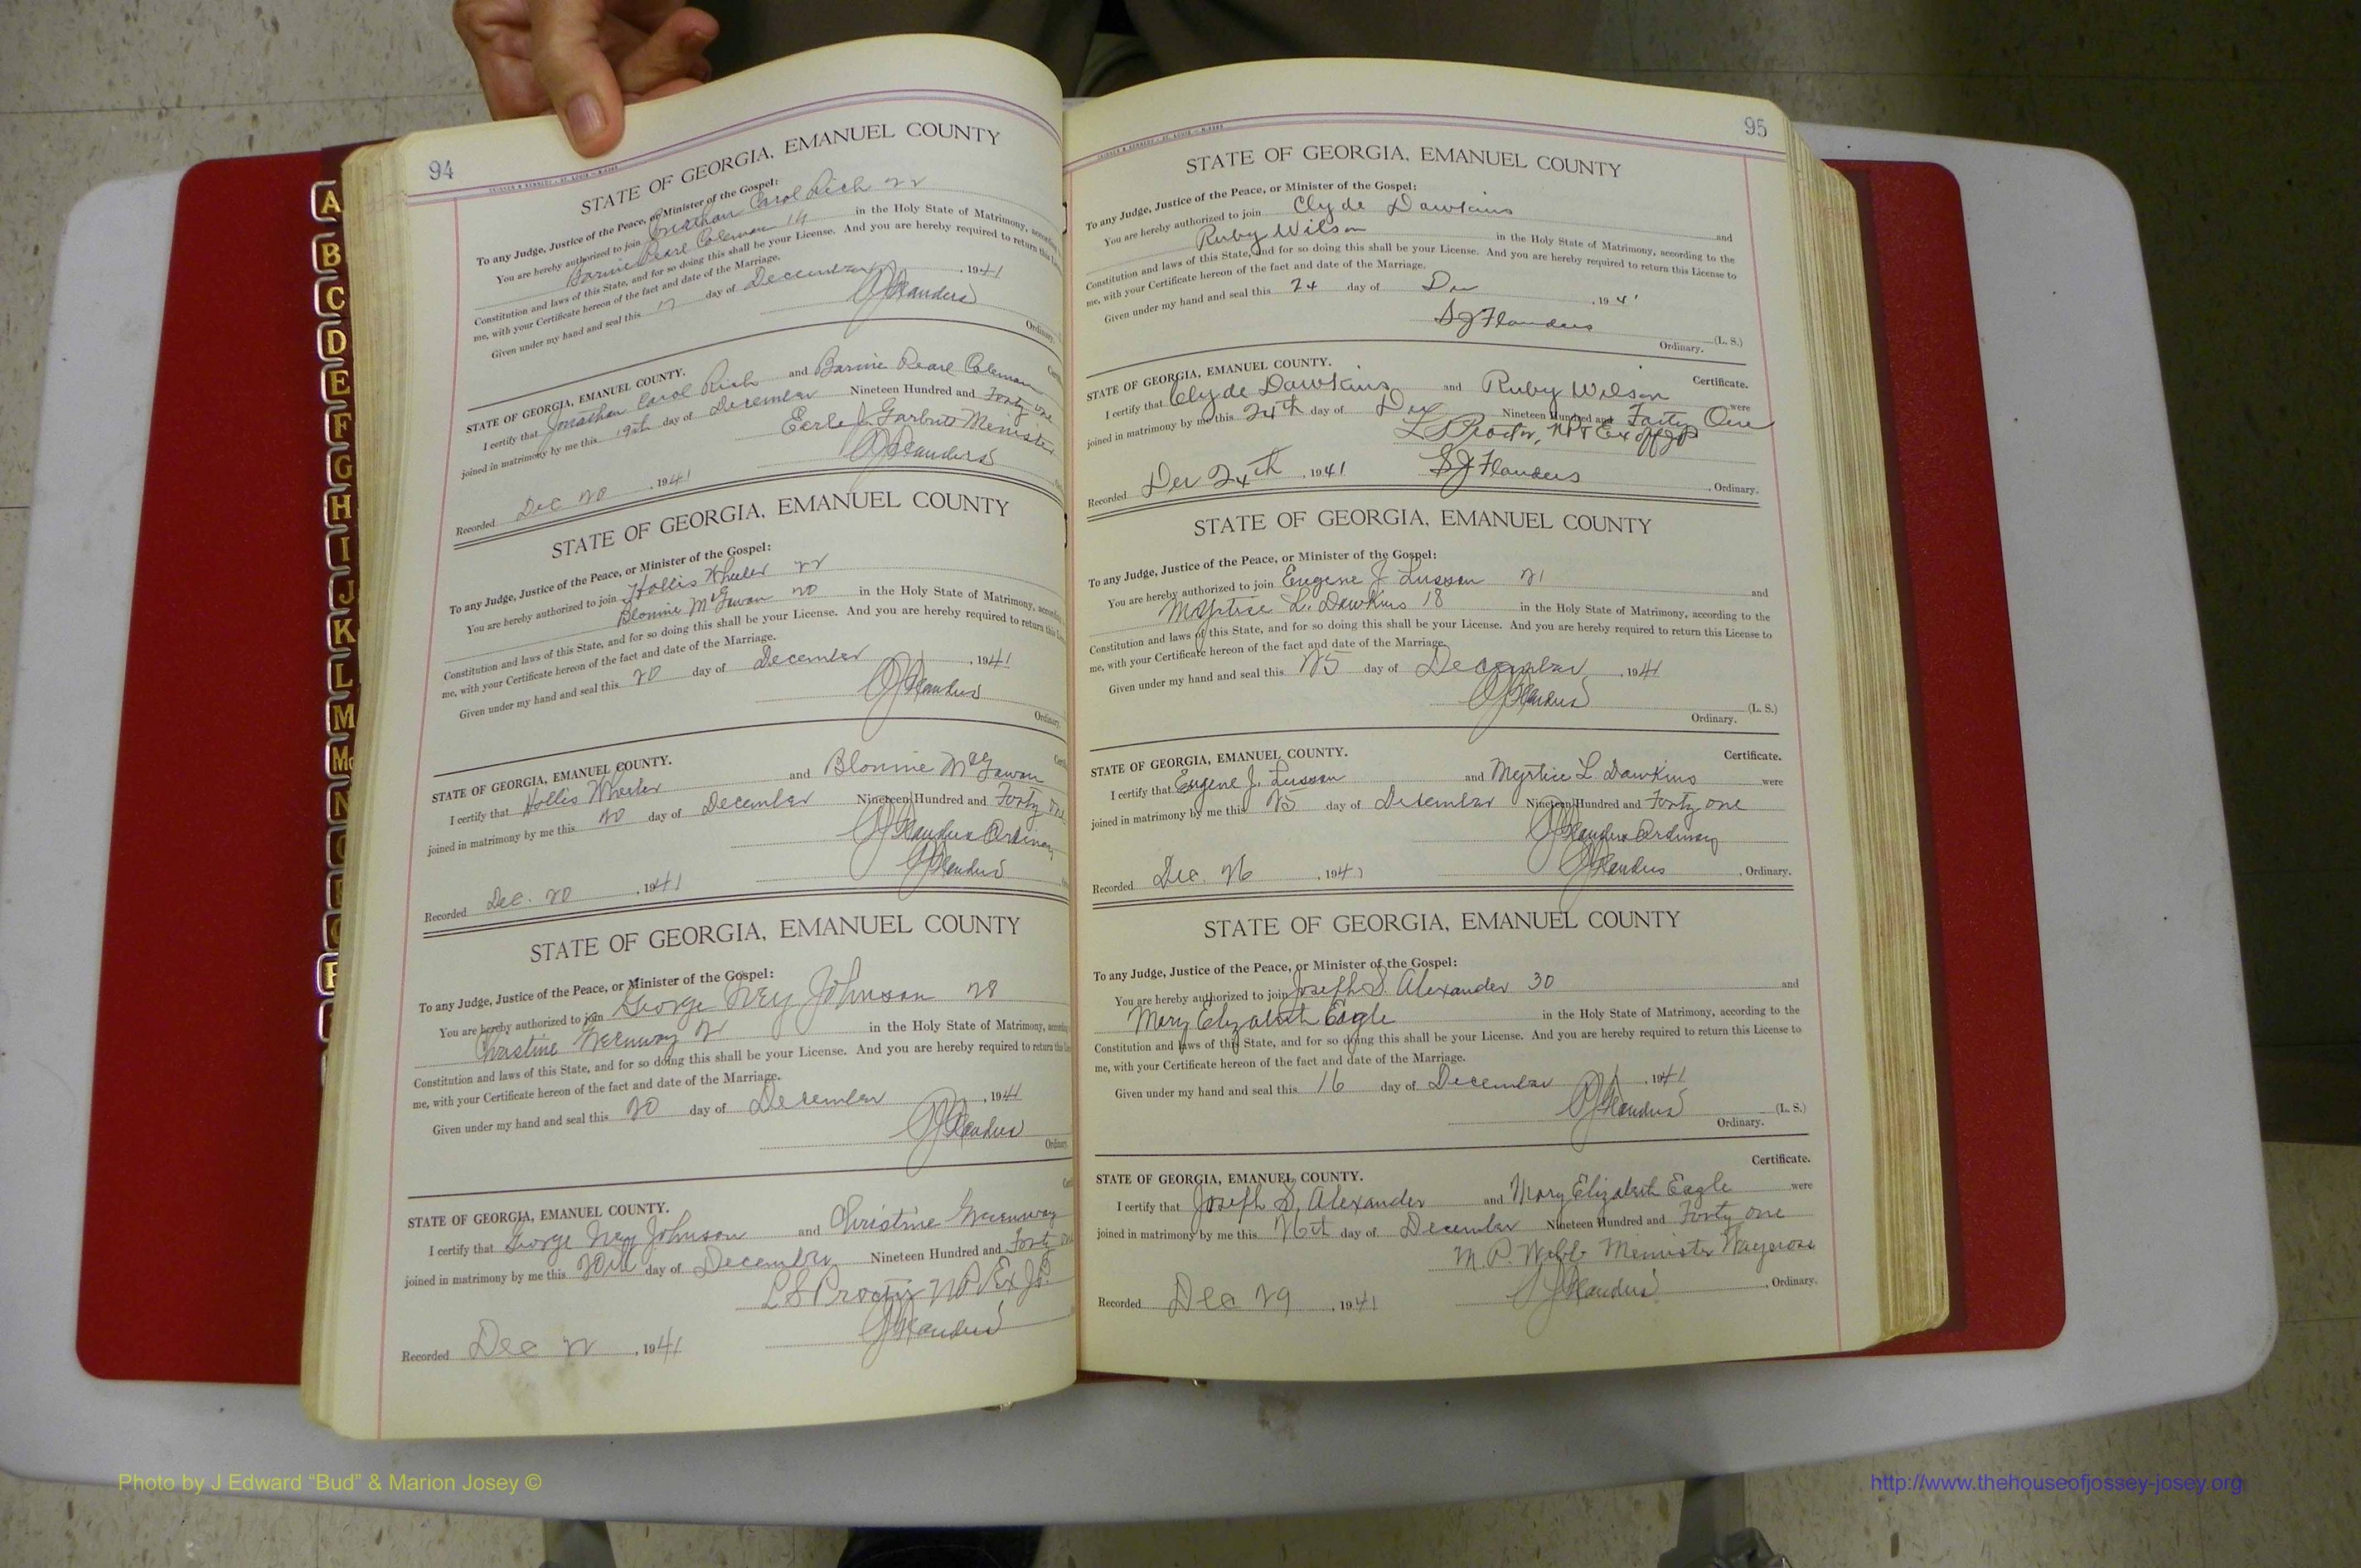 94
STATE OF GEORGIA, EMANUEL COUNTY
To any Judge, Justice of the Peace, or Minister of the Gospel:
You are hereby authorized to join Jonathan Carol Rich 22
Barnie Pearl Coleman 19 in the Holy State of Matrimony,
Constitution and laws of this State, and for so doing this shall be your License. And you are hereby required to return this
me, with your Certificate hereon of the fact and date of the Marriage.
Given under my hand and seal this 17 day of December, 1941
SJ Flanders
Ordinary.
STATE OF GEORGIA, EMANUEL COUNTY.
I certify that Jonathan Carol Rich and Barnie Pearl Coleman
joined in matrimony by me this 19th day of December Nineteen Hundred and Forty One
Earle J. Garbutt Menister
SJ Flanders
Recorded Dec 20, 1941
STATE OF GEORGIA, EMANUEL COUNTY
To any Judge, Justice of the Peace, or Minister of the Gospel:
You are hereby authorized to join Hollis Wheeler 22
Blonnie McGowan 20 in the Holy State of Matrimony,
Constitution and laws of this State, and for so doing this shall be your License. And you are hereby required to return this
me, with your Certificate hereon of the fact and date of the Marriage.
Given under my hand and seal this 20 day of December, 1941
SJ Flanders
Ordinary.
STATE OF GEORGIA, EMANUEL COUNTY.
I certify that Hollis Wheeler and Blonnie McGowan
joined in matrimony by me this 20 day of December Nineteen Hundred and Forty one
SJ Flanders Ordinary
SJ Flanders
Recorded Dec. 20, 1941
STATE OF GEORGIA, EMANUEL COUNTY
To any Judge, Justice of the Peace, or Minister of the Gospel:
You are hereby authorized to join George Ivey Johnson 28
Christine Greenway 21 in the Holy State of Matrimony,
Constitution and laws of this State, and for so doing this shall be your License. And you are hereby required to return this
me, with your Certificate hereon of the fact and date of the Marriage.
Given under my hand and seal this 20 day of December, 1941
SJ Flanders
Ordinary
STATE OF GEORGIA, EMANUEL COUNTY.
I certify that George Ivey Johnson and Christine Greenway
joined in matrimony by me this 20th day of December Nineteen Hundred and Forty one
L S Proctor NP Ex J.P.
SJ Flanders
Recorded Dec 22, 1941
95
STATE OF GEORGIA, EMANUEL COUNTY
To any Judge, Justice of the Peace, or Minister of the Gospel:
You are hereby authorized to join Clyde Dawkins and
Ruby Wilson in the Holy State of Matrimony, according to the
Constitution and laws of this State, and for so doing this shall be your License. And you are hereby required to return this License to
me, with your Certificate hereon of the fact and date of the Marriage.
Given under my hand and seal this 24 day of Dec, 194'
SJ Flanders (L. S.)
Ordinary.
STATE OF GEORGIA, EMANUEL COUNTY. Certificate.
I certify that Clyde Dawkins and Ruby Wilson were
joined in matrimony by me this 24th day of Dec Nineteen Hundred and Forty One
L S Proctor, NP & Ex off JP
Recorded Dec 24th, 1941 SJ Flanders, Ordinary.
STATE OF GEORGIA, EMANUEL COUNTY
To any Judge, Justice of the Peace, or Minister of the Gospel:
You are hereby authorized to join Eugene J. Lusson 21 and
Myrtice L. Dawkins 18 in the Holy State of Matrimony, according to the
Constitution and laws of this State, and for so doing this shall be your License. And you are hereby required to return this License to
me, with your Certificate hereon of the fact and date of the Marriage.
Given under my hand and seal this 25 day of December, 1941
SJ Flanders (L. S.)
Ordinary.
STATE OF GEORGIA, EMANUEL COUNTY. Certificate.
I certify that Eugene J. Lusson and Myrtice L. Dawkins were
joined in matrimony by me this 25 day of December Nineteen Hundred and Forty one
SJ Flanders Ordinary
SJ Flanders
Recorded Dec. 26, 1941, Ordinary.
STATE OF GEORGIA, EMANUEL COUNTY
To any Judge, Justice of the Peace, or Minister of the Gospel:
You are hereby authorized to join Joseph S. Alexander 30 and
Mary Elizabeth Eagle in the Holy State of Matrimony, according to the
Constitution and laws of this State, and for so doing this shall be your License. And you are hereby required to return this License to
me, with your Certificate hereon of the fact and date of the Marriage.
Given under my hand and seal this 16 day of December, 1941
SJ Flanders (L. S.)
Ordinary.
STATE OF GEORGIA, EMANUEL COUNTY. Certificate.
I certify that Joseph S. Alexander and Mary Elizabeth Eagle were
joined in matrimony by me this 26th day of December Nineteen Hundred and Forty one
M. P. Webb Menister Waycross
SJ Flanders, Ordinary.
Recorded Dec 29, 1941
A
B
C
D
E
F
G
H
I
J
K
L
M
Mc
N
Photo by J Edward “Bud” & Marion Josey ©
http://www.thehouseofjossey-josey.org